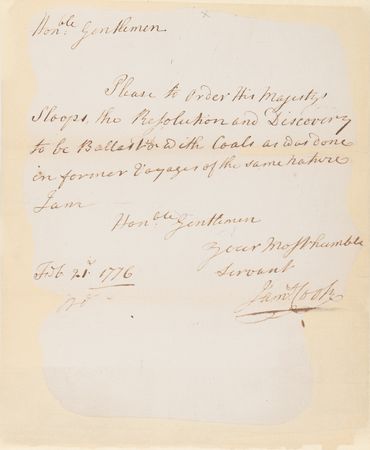 Hon.ble Gentlemen
Please to order His Majestys
Sloops the Resolution and Discovery
to be Ballast'd with Coals as was done
in former Voyages of the same nature
I am
Hon.ble Gentlemen
Your Most humble
Servant
Feb 21st 1776
Jam.s Cook